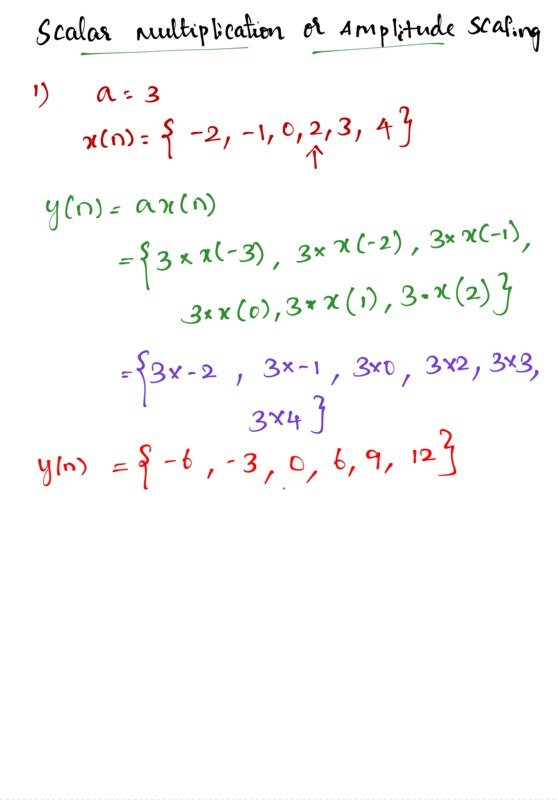 Scalar multiplication or Amplitude Scaling
1) a = 3
x(n) = { -2, -1, 0, 2, 3, 4 }
↑
y(n) = ax(n)
= { 3 * x(-3), 3 * x(-2), 3 * x(-1),
3 * x(0), 3 * x(1), 3 • x(2) }
= { 3x-2, 3x-1, 3x0, 3x2, 3x3,
3x4 }
y(n) = { -6, -3, 0, 6, 9, 12 }